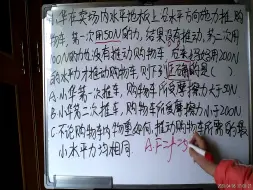 华在卖场内水平地板上沿水平方向施力推购
物车,第一次用50N的力,结果没有推动,第二次用
100N的力也没有推动购物车,后来用200N
的水平力才推动购物车,则下列正确的是( )
A.小华第一次推车,购物车所受摩擦力大于50N
B.小华第二次推车,购物车所受摩擦力小于200N
C.不论购物车内物重如何,推动购物车所需的最
小水平力均相同.
A.F=f=5